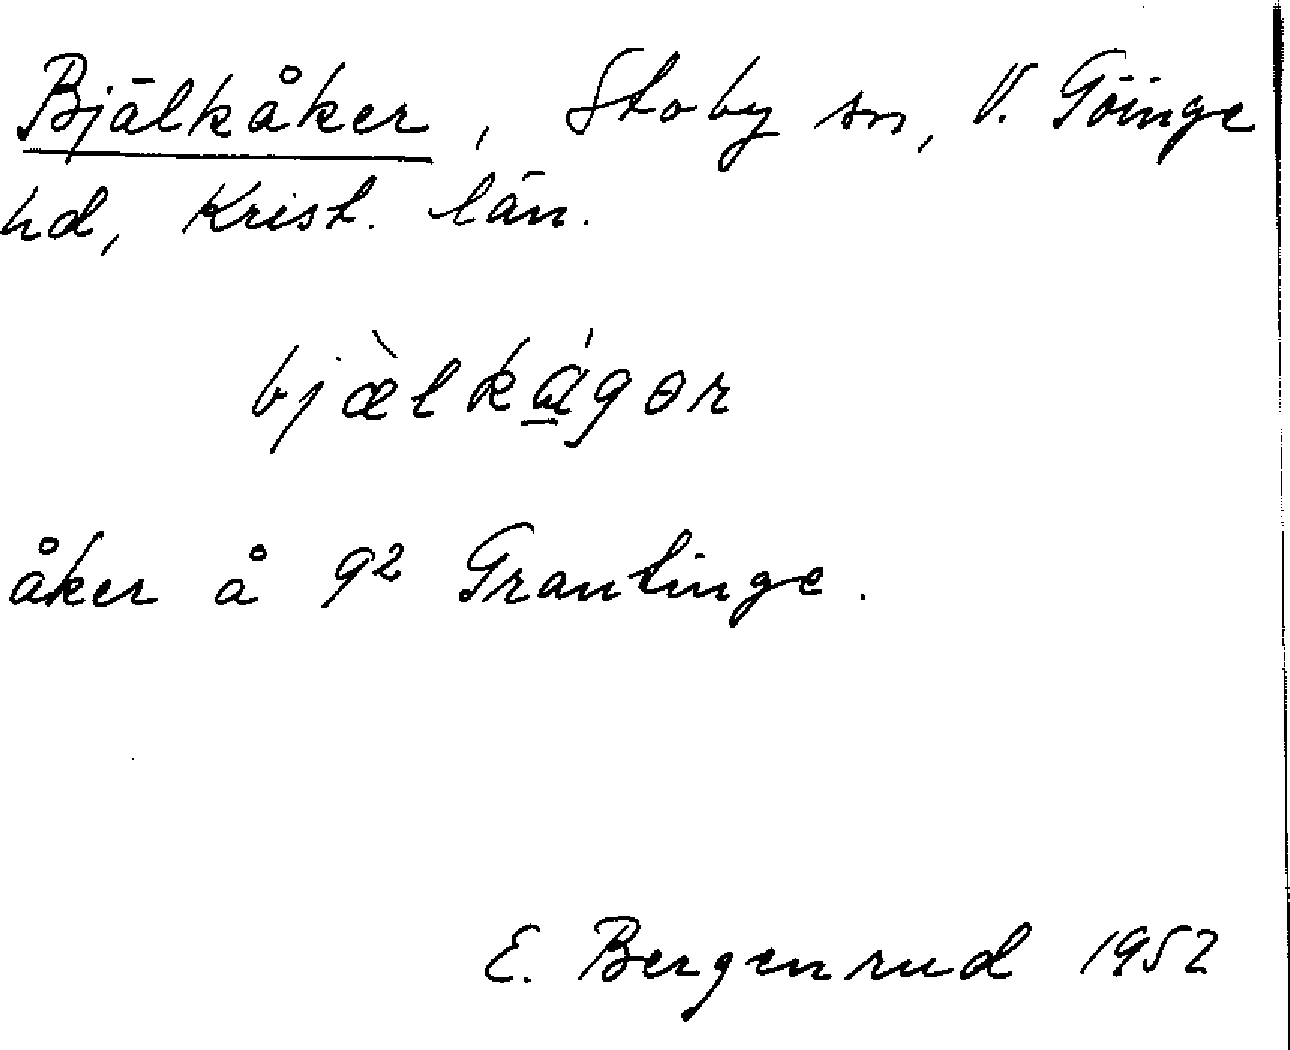 Bjälkåker, Stoby sn, V. Göinge
hd, Krist. län.
bjæ̀lkά̲gər
åker å g2 Grantinge.
E. Bergenrud 1952